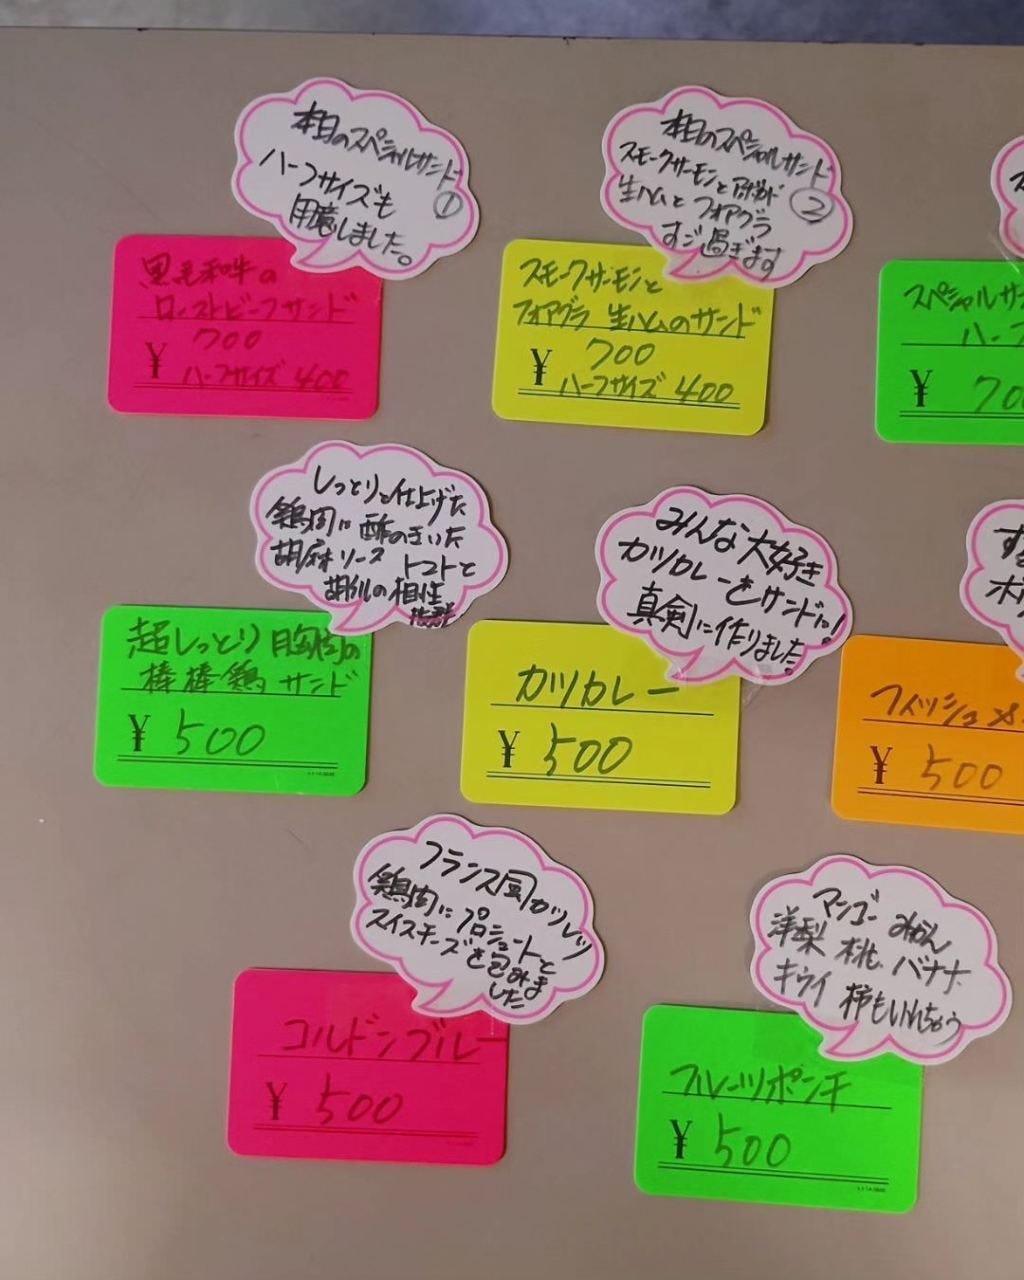 本日のスペシャルサンド
①
ハーフサイズも
用意しました。
黒毛和牛の
ローストビーフサンド
¥ 700
ハーフサイズ 400
本日のスペシャルサンド
②
スモークサーモンと
生ハムと フォアグラ
すご過ぎます
スモークサーモンと
フォアグラ 生ハムのサンド
¥ 700
ハーフサイズ 400
スペシャルサ
ハーフ
¥ 700
しっとりと仕上げた
鶏肉に 酢のきいた
胡麻ソース トマトと
胡瓜の相性
抜群
超しっとり 胸肉の
棒棒鶏 サンド
¥ 500
みんな大好き
カツカレーをサンドに!
真剣に作りました。
カツカレー
¥ 500
フィッシュ
¥ 500
フランス風カツレツ
鶏肉に プロシュートと
スイスチーズを包みま
した
コルドンブルー
¥ 500
マンゴー みかん
洋梨 桃 バナナ
キウイ 柿もいれちゃう
フルーツポンチ
¥ 500